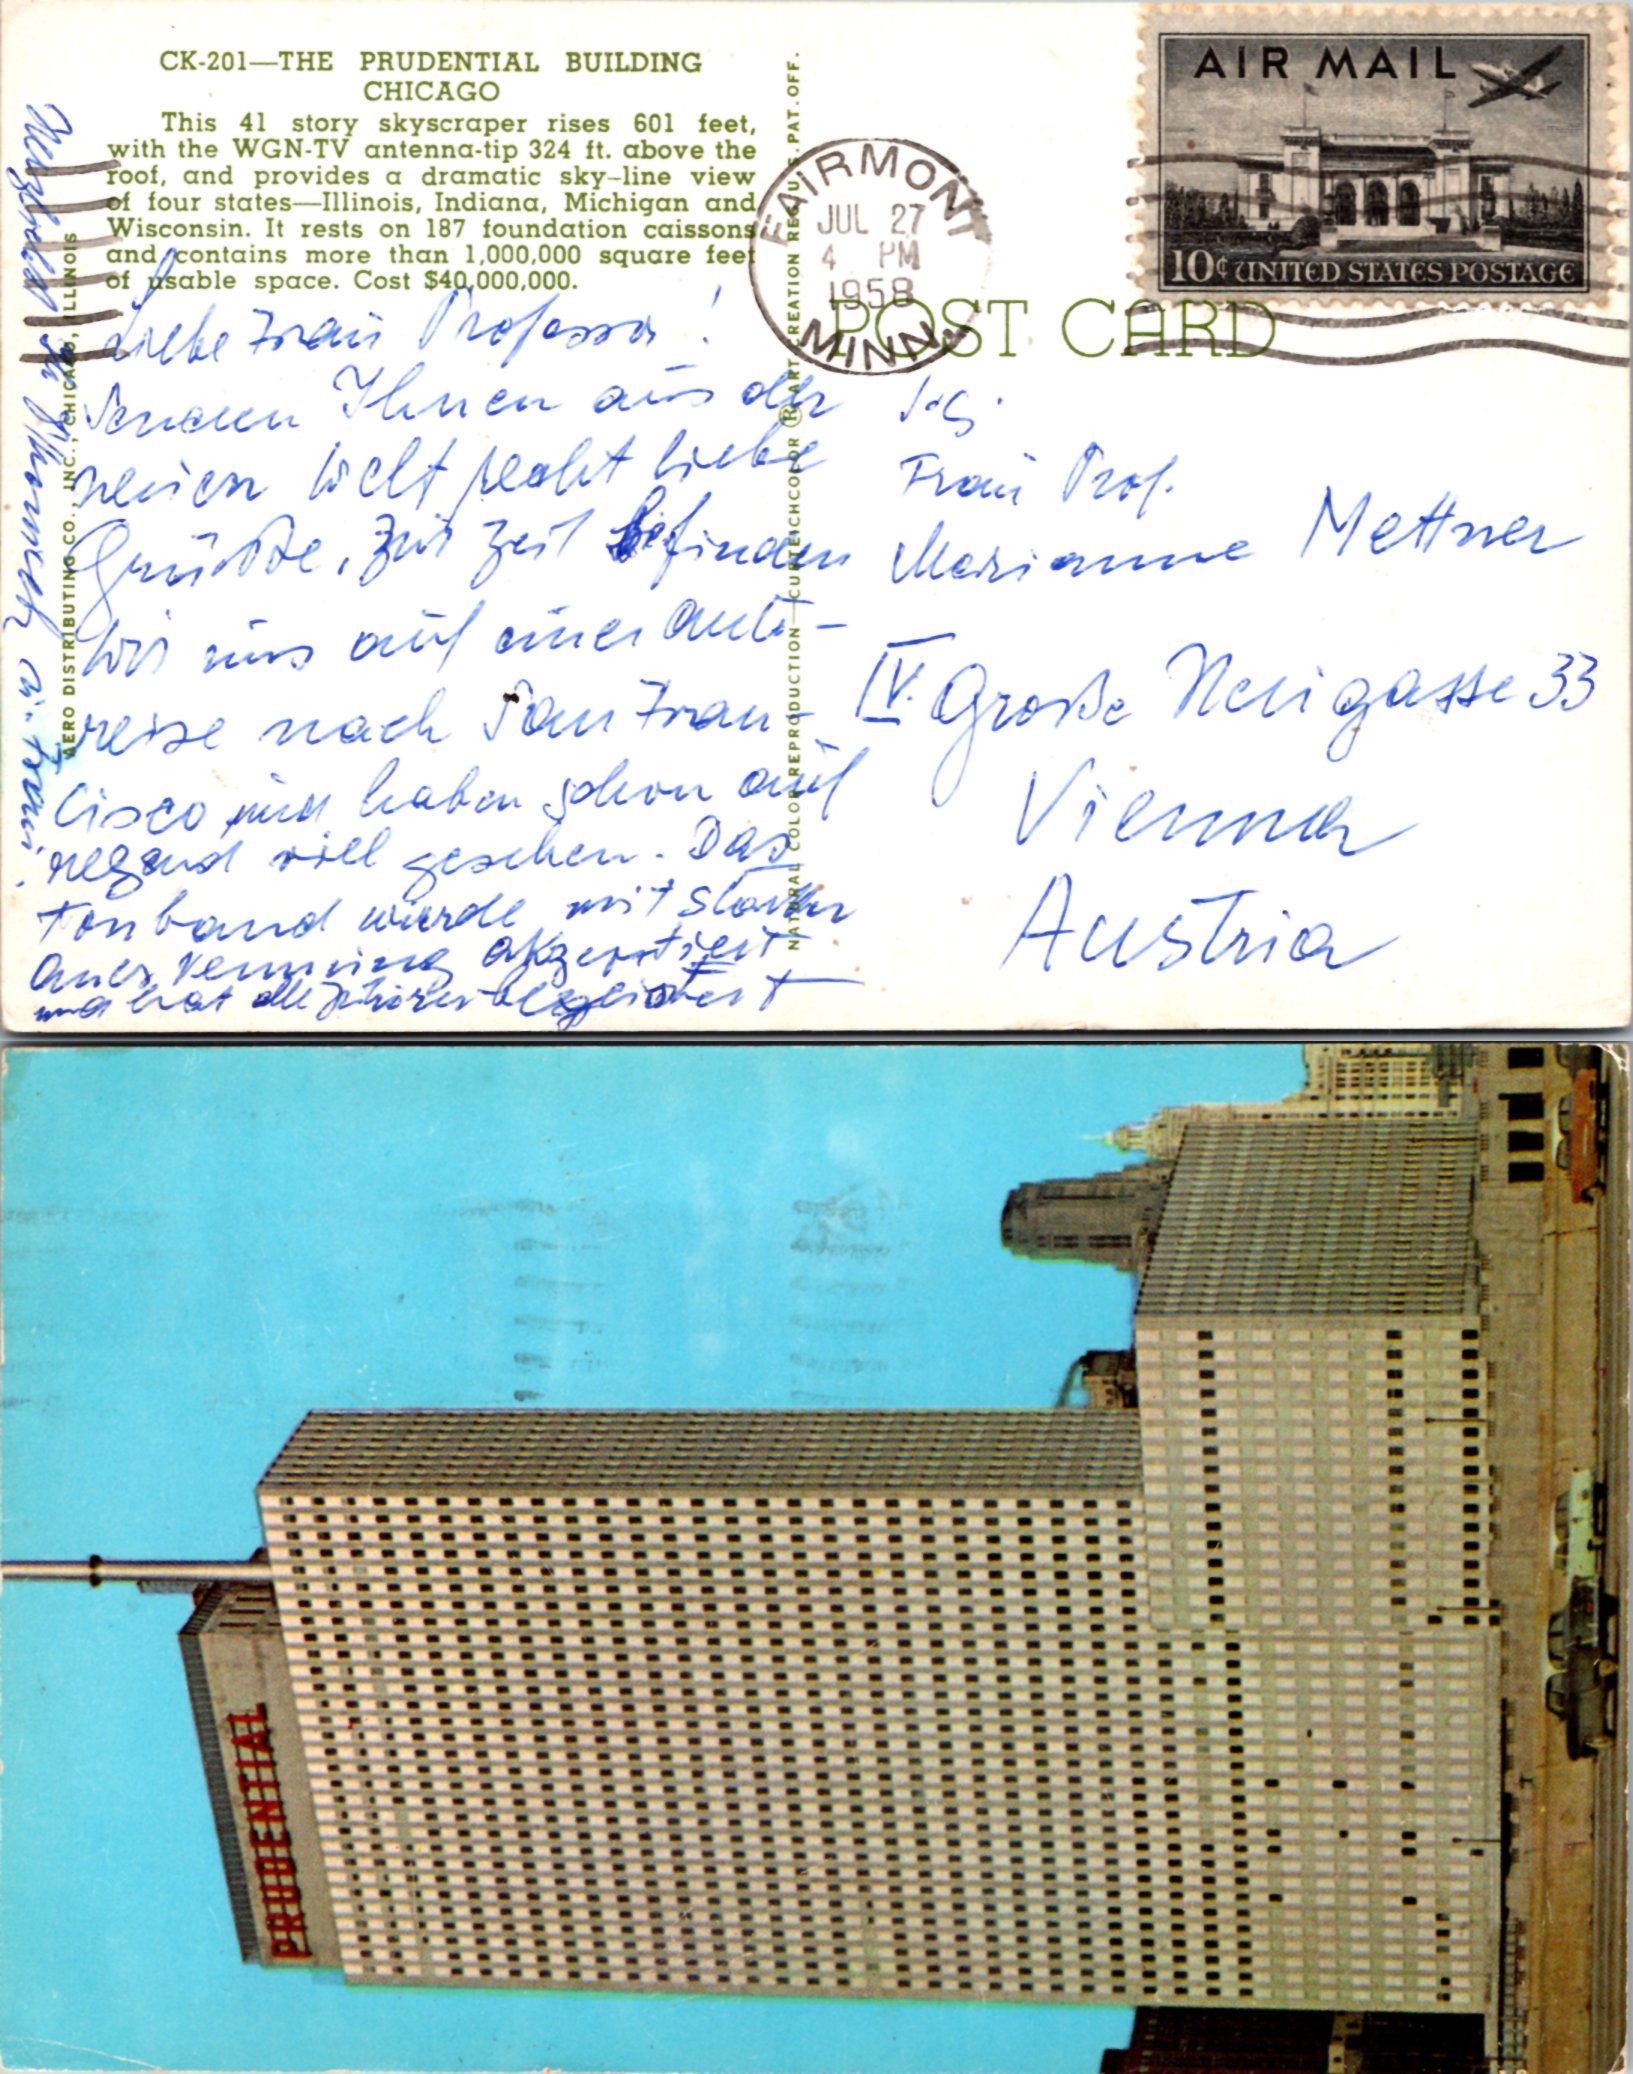 CK-201—THE PRUDENTIAL BUILDING
CHICAGO
This 41 story skyscraper rises 601 feet,
with the WGN-TV antenna-tip 324 ft. above the
roof, and provides a dramatic sky-line view
of four states—Illinois, Indiana, Michigan and
Wisconsin. It rests on 187 foundation caissons
and contains more than 1,000,000 square feet
of usable space. Cost $40,000,000.
Liebe Frau Professor!
Senden Ihnen aus der
neuen Welt recht liebe
Grüße, zur Zeit befinden
wir uns auf einer Auto-
reise nach San Fran-
cisco und haben schon auf
viel gesehen. Das
Tonband wurde mit starker
Anerkennung akzeptiert
und hat alle Zuhörer begeistert
u. Frau
AERO DISTRIBUTING CO., INC., CHICAGO, ILLINOIS
NATURAL COLOR REPRODUCTION—CURTEICHCOLOR ® ART CREATION REG. U.S. PAT. OFF.
FAIRMONT
JUL 27
4 PM
1958
MINN.
AIR MAIL
10¢ UNITED STATES POSTAGE
POST CARD
Frau Prof.
Marianne Mettner
IV. Große Neugasse 33
Vienna
Austria
PRUDENTIAL